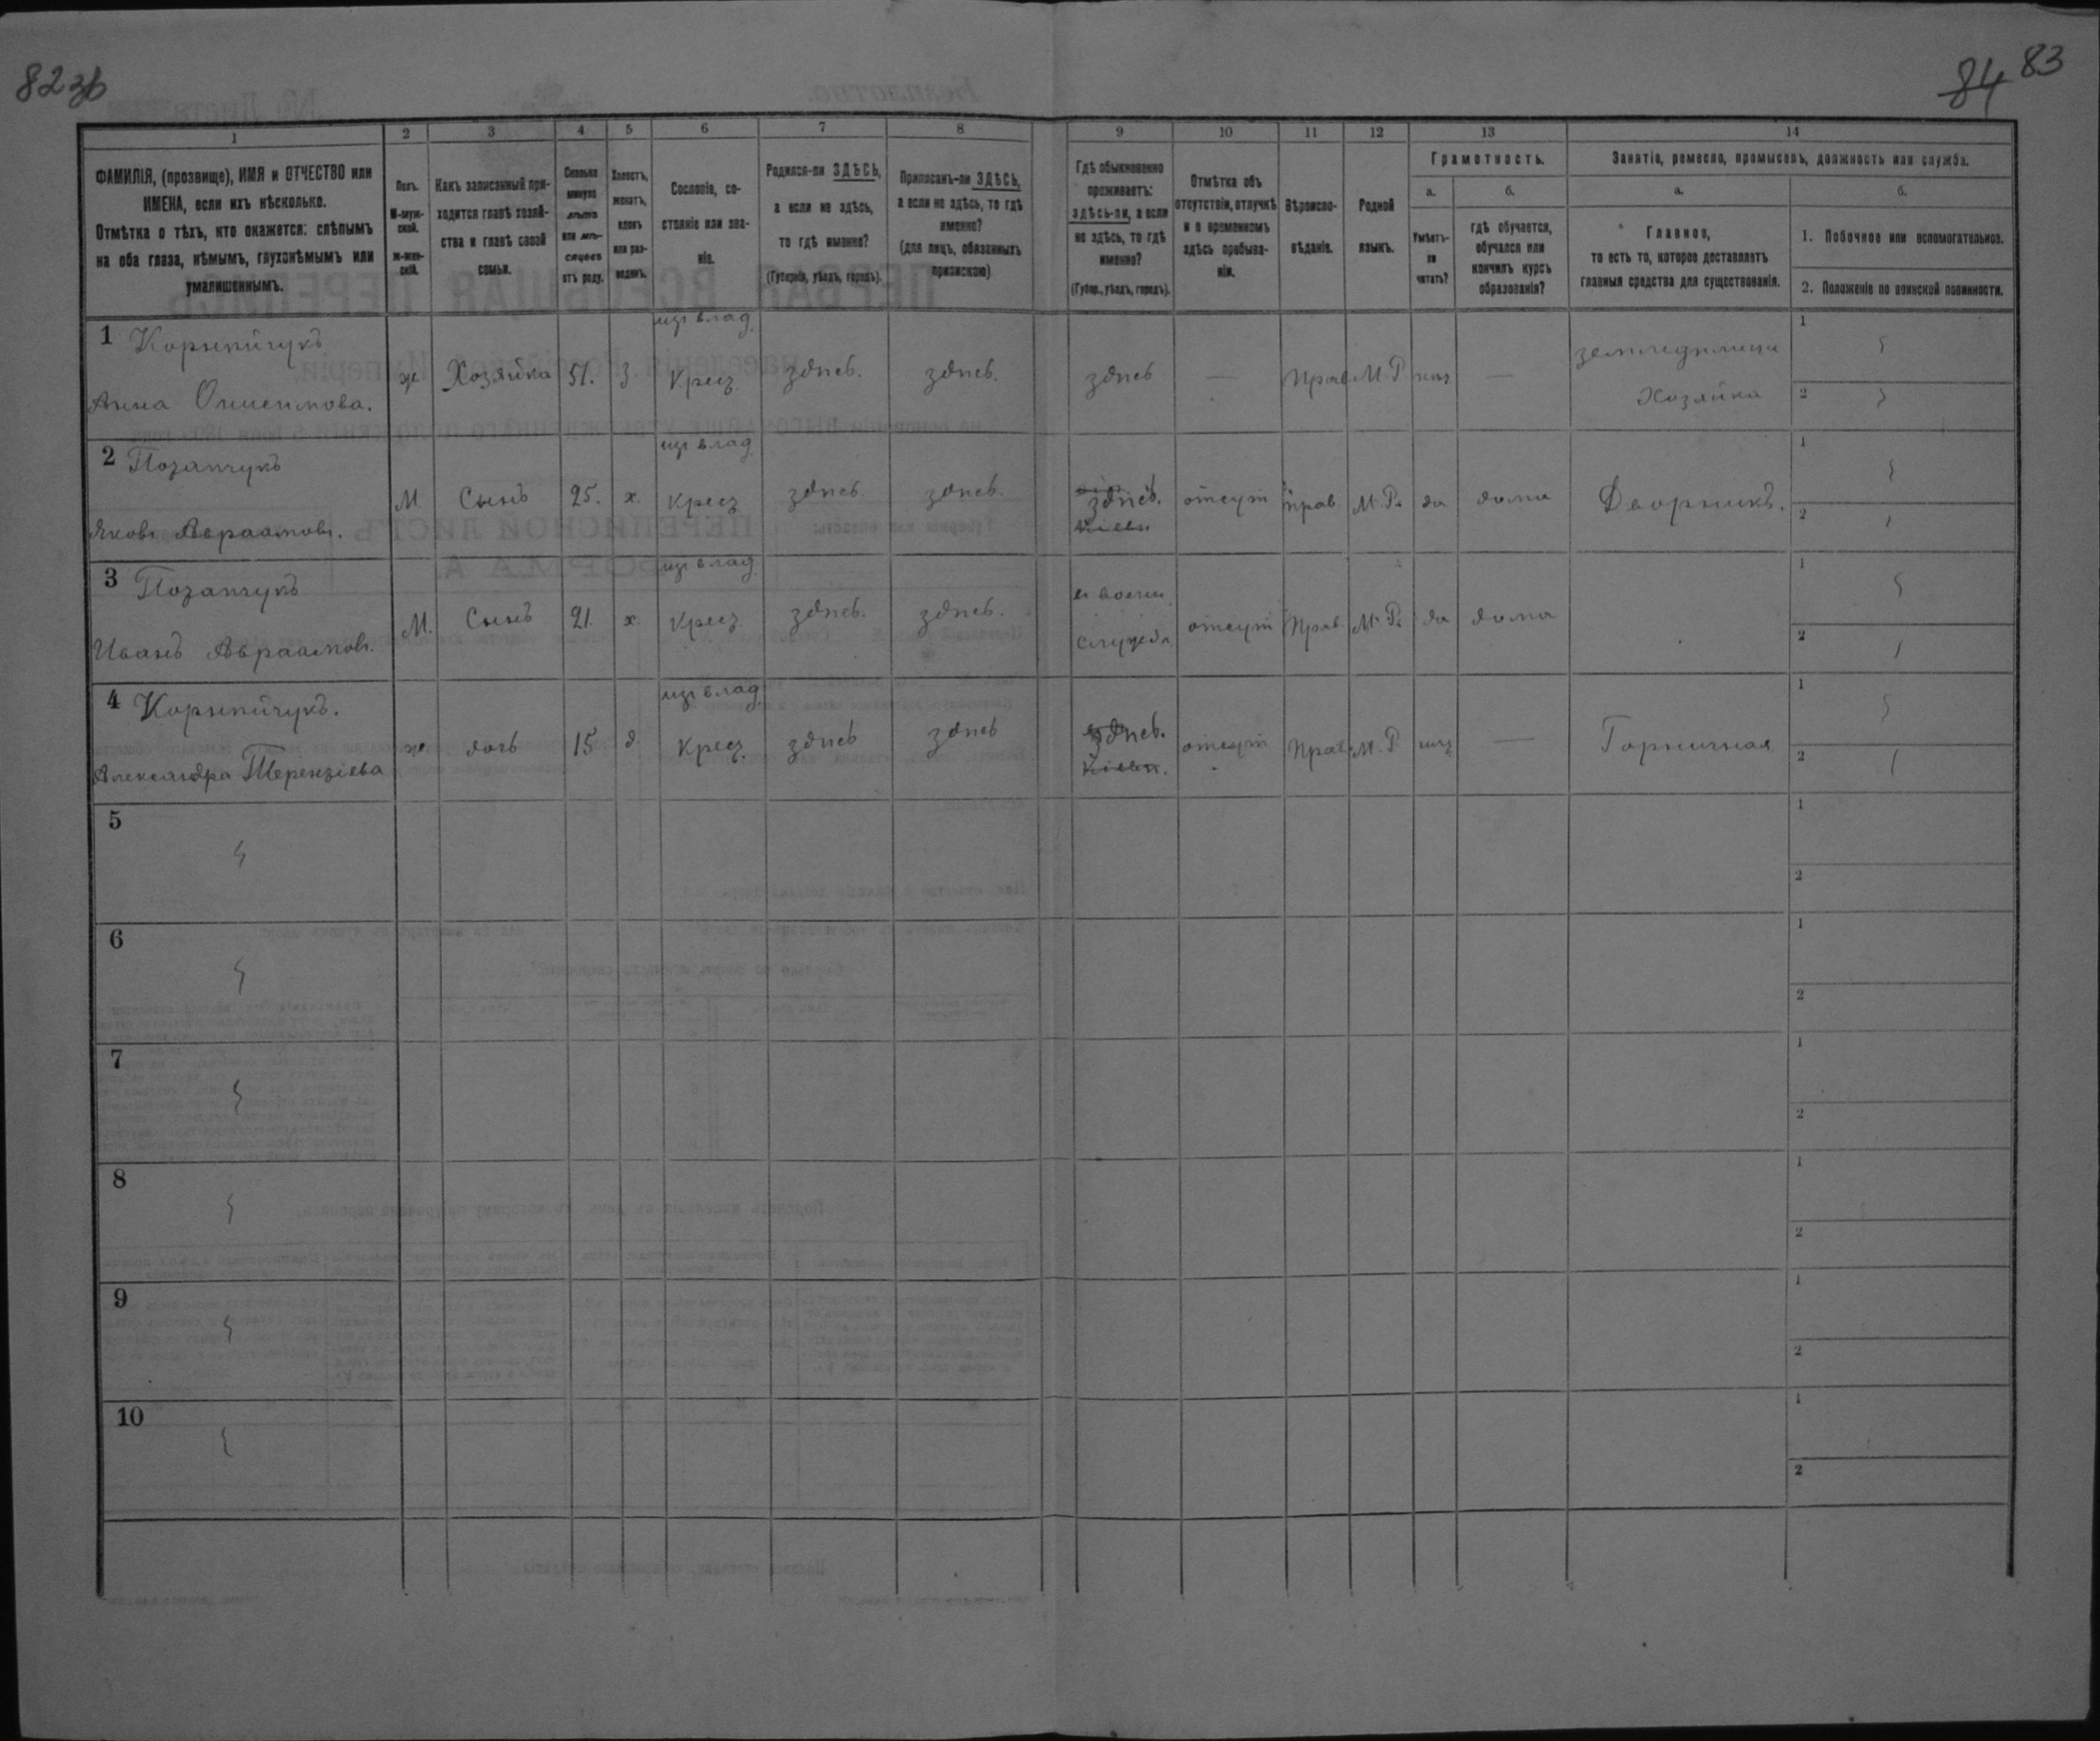 82 зв
84 83
1 2 3 4 5 6 7 8 9 10 11 12 13 14
ФАМИЛІЯ, (прозвище), ИМЯ и ОТЧЕСТВО или
ИМЕНА, если ихъ нѣсколько.
Отмѣтка о тѣхъ, кто окажется: слѣпымъ
на оба глаза, нѣмымъ, глухонѣмымъ или
умалишеннымъ.
Полъ.
М-муж-
ской.
Ж-жен-
скій.
Какъ записанный при-
ходится главѣ хозяй-
ства и главѣ своей
семьи.
Сколько
минуло
лѣтъ
или мѣ-
сяцевъ
отъ роду.
Холостъ,
женатъ,
вдовъ
или раз-
веденъ.
Сословіе, со-
стояніе или зва-
ніе.
Родился-ли ЗДѢСЬ,
а если не здѣсь,
то гдѣ именно?
(Губернія, уѣздъ, городъ).
Приписанъ-ли ЗДѢСЬ,
а если не здѣсь, то гдѣ
именно?
(для лицъ, обязанныхъ
припискою)
Гдѣ обыкновенно
проживаетъ:
здѣсь-ли, а если
не здѣсь, то гдѣ
именно?
(Губер., уѣздъ, городъ).
Отмѣтка объ
отсутствіи, отлучкѣ
и о временномъ
здѣсь пребыва-
ніи.
Вѣроиспо-
вѣданіе.
Родной
языкъ.
Грамотность.
а.
Умѣетъ-
ли
читать?
б.
гдѣ обучается,
обучался или
кончилъ курсъ
образованія?
Занятіе, ремесло, промыселъ, должность или служба.
а.
Главное,
то есть то, которое доставляетъ
главныя средства для существованія.
б.
1. Побочное или вспомогательное.
2. Положеніе по воинской повинности.
1 Корнпійчукъ
Анна Онисимова.
ж Хозяйка 51. з
изъ влад.
Крест. здѣсь. здѣсь. здѣсь — Прав. М.Р. —
Хозяйка
1
2
2 Позапчукъ
Яковъ Авраамовъ.
М. Сынъ 25. х.
изъ влад.
Крест. здѣсь. здѣсь. здѣсь. отсут прав. М.Р. да дома Дворникъ.
Кіевъ
1
2
3 Позапчукъ
Иванъ Авраамовъ.
М. Сынъ 21. х.
изъ влад.
Крест. здѣсь. здѣсь.
служба отсут Прав. М.Р. да дома
1
2
4 Корнпійчукъ.
Александра Терензіева
ж дочь 15 д.
изъ влад.
Крест. здѣсь здѣсь здѣсь. отсут Прав. М.Р. — Горничная
Кіевъ.
1
2
5
1
2
6
1
2
7
1
2
8
1
2
9
1
2
10
1
2